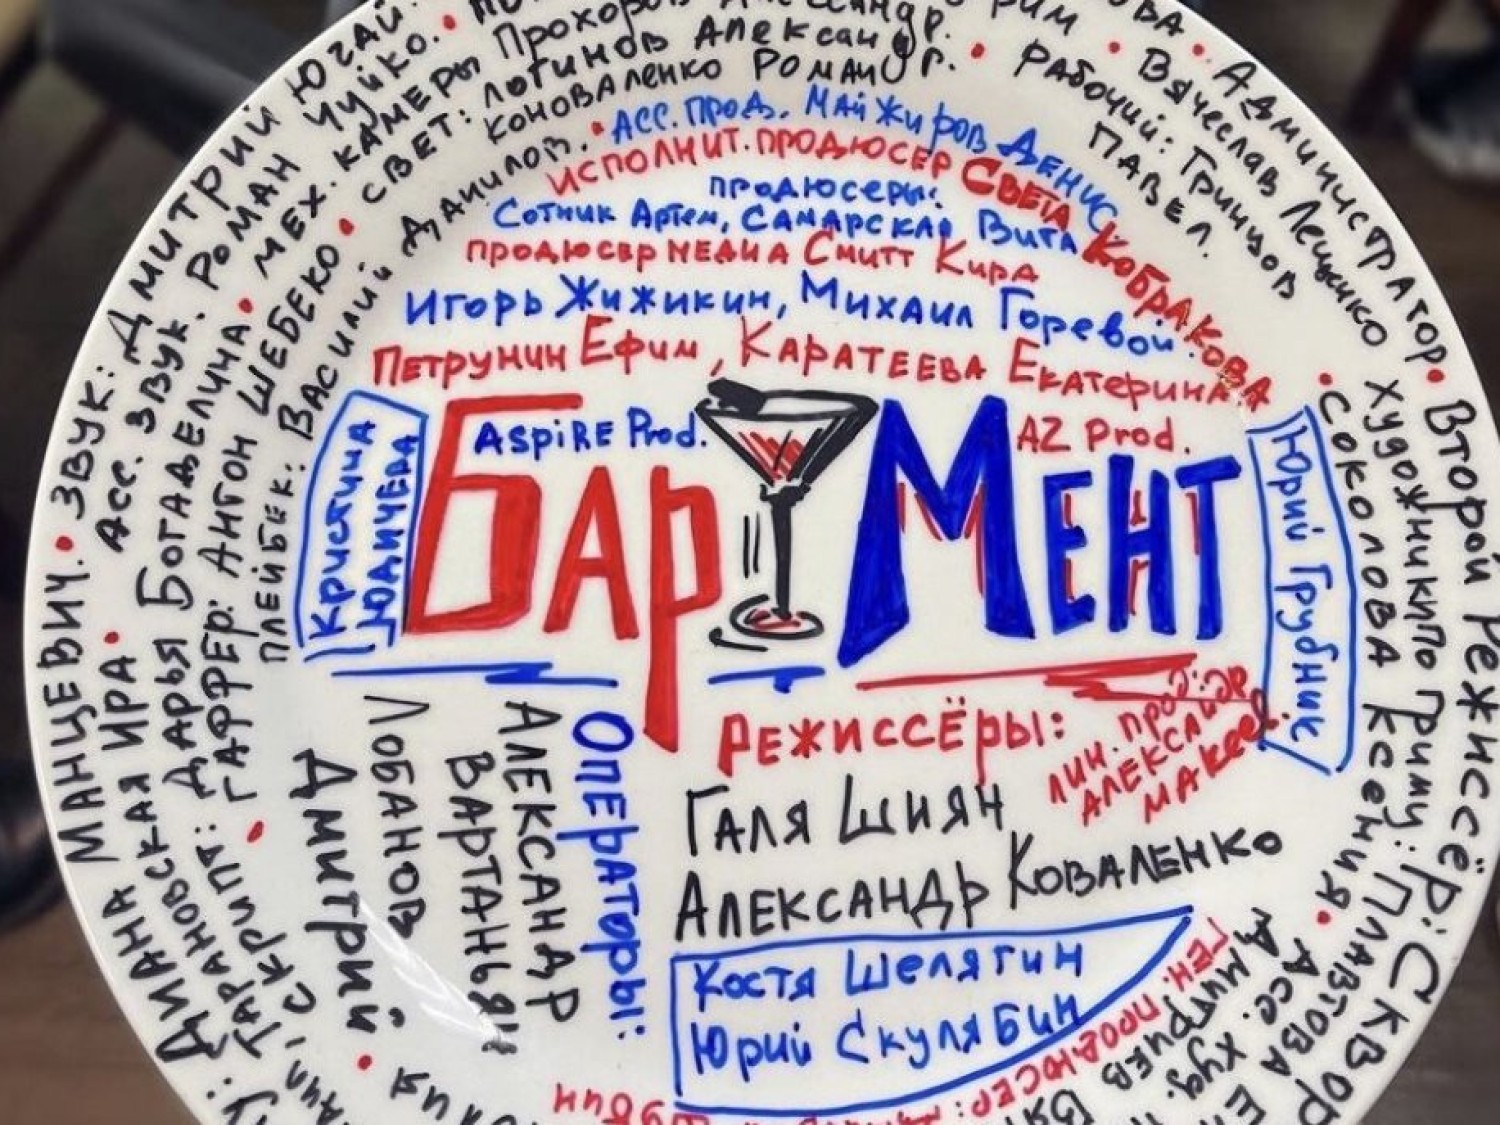 АСС. ПРОД. МАЙЖИРОВ ДЕНИС.
ИСПОЛНИТ. ПРОДЮСЕР СВЕТА КОБРАКОВА
ПРОДЮСЕРЫ:
СОТНИК АРТЕМ, САМАРСКАЯ ВИТА
ПРОДЮСЕР МЕДИА СМИТТ КИРА
ИГОРЬ ЖИЖИКИН, МИХАИЛ ГОРЕВОЙ.
ПЕТРУНИН ЕФИМ, КАРАТЕЕВА ЕКАТЕРИНА
ASPIRE Prod.
AZ Prod.
БАР МЕНТ
КРИСТИНА
ЮДИЧЕВА
ЮРИЙ ГРУБНИК
РЕЖИССЁРЫ:
ГАЛЯ ШИЯН
АЛЕКСАНДР КОВАЛЕНКО
КОСТЯ ШЕЛЯГИН
ЮРИЙ СКУЛЯБИН
ЛИН. ПРОД:
АЛЕКСАНДР
МАКЕЕВ
ОПЕРАТОРЫ:
АЛЕКСАНДР
ВАРТАНЬЯН
ЛОБАНОВ
ДМИТРИЙ
МАНЦЕВИЧ. • ЗВУК: ДМИТРИЙ ЮГАЙ.
ДИАНА ТАРАНОВСКАЯ ИРА • АСС. ЗВУК. РОМАН ЧУЙКО. •
СКРИПТ: ДАРЬЯ БОГАДЕЛИНА • МЕХ. КАМЕРЫ ПРОХОРОВ АЛЕКСАНДР.
• ГАФФЕР: АНТОН ШЕБЕКО • СВЕТ: ЛОГИНОВ АЛЕКСАНДР.
КОНОВАЛЕНКО РОМАН
ПЛЕЙБЕК: ВАСИЛИЙ ДАНИЛОВ. •
• РАБОЧИЙ: ГРИНЦОВ
ПАВЕЛ.
• ВЯЧЕСЛАВ ЛЕЩЕНКО
• АДМИНИСТРАТОР
• ВТОРОЙ РЕЖИССЁР:
ХУДОЖНИК ПО ГРИМУ:
• СОКОЛОВА КСЕНИЯ •
АСС. ХУД.
ДМИТРИЕВ
ГЕН. ПРОДЮСЕР: